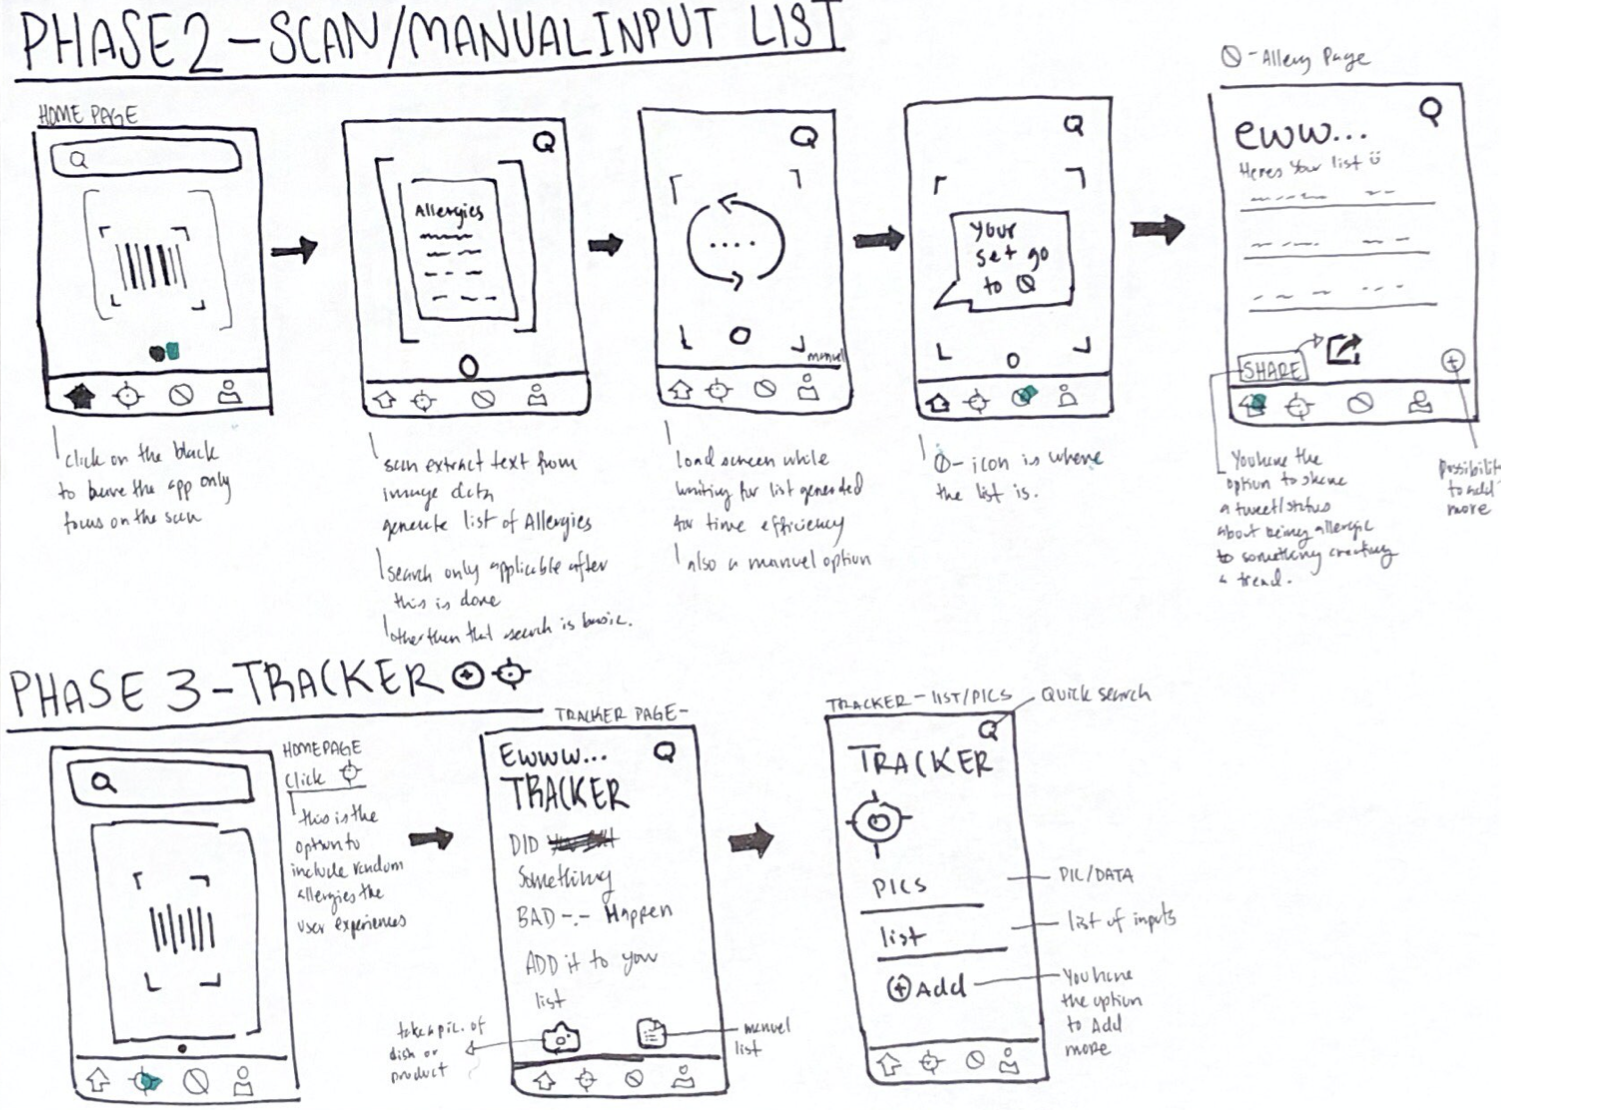 PHASE 2 - SCAN/MANUAL INPUT LIST
HOME PAGE
click on the black
to have the app only
focus on the scan
Allergies
scan extract text from
image data
generate list of Allergies
search only applicable after
this is done
other then that search is basic.
....
manuel
Load screen while
waiting for list generated
for time efficiency
also a manuel option
Your
set go
to
- icon is where
the list is.
- Allergy Page
eww...
Heres Your list
SHARE
You have the
option to share
a tweet/status
about being allergic
to something creating
a trend.
Possibility
to add
more
PHASE 3 - TRACKER
HOMEPAGE
Click
this is the
option to
include random
allergies the
user experiences
TRACKER PAGE -
Ewww...
TRACKER
DID
Something
BAD -.- Happen
ADD it to your
list
take a pic. of
dish or
product
manuel
list
TRACKER - LIST/PICS
Quick search
TRACKER
PICS
PIC/DATA
list
list of inputs
Add
You have
the option
to Add
more